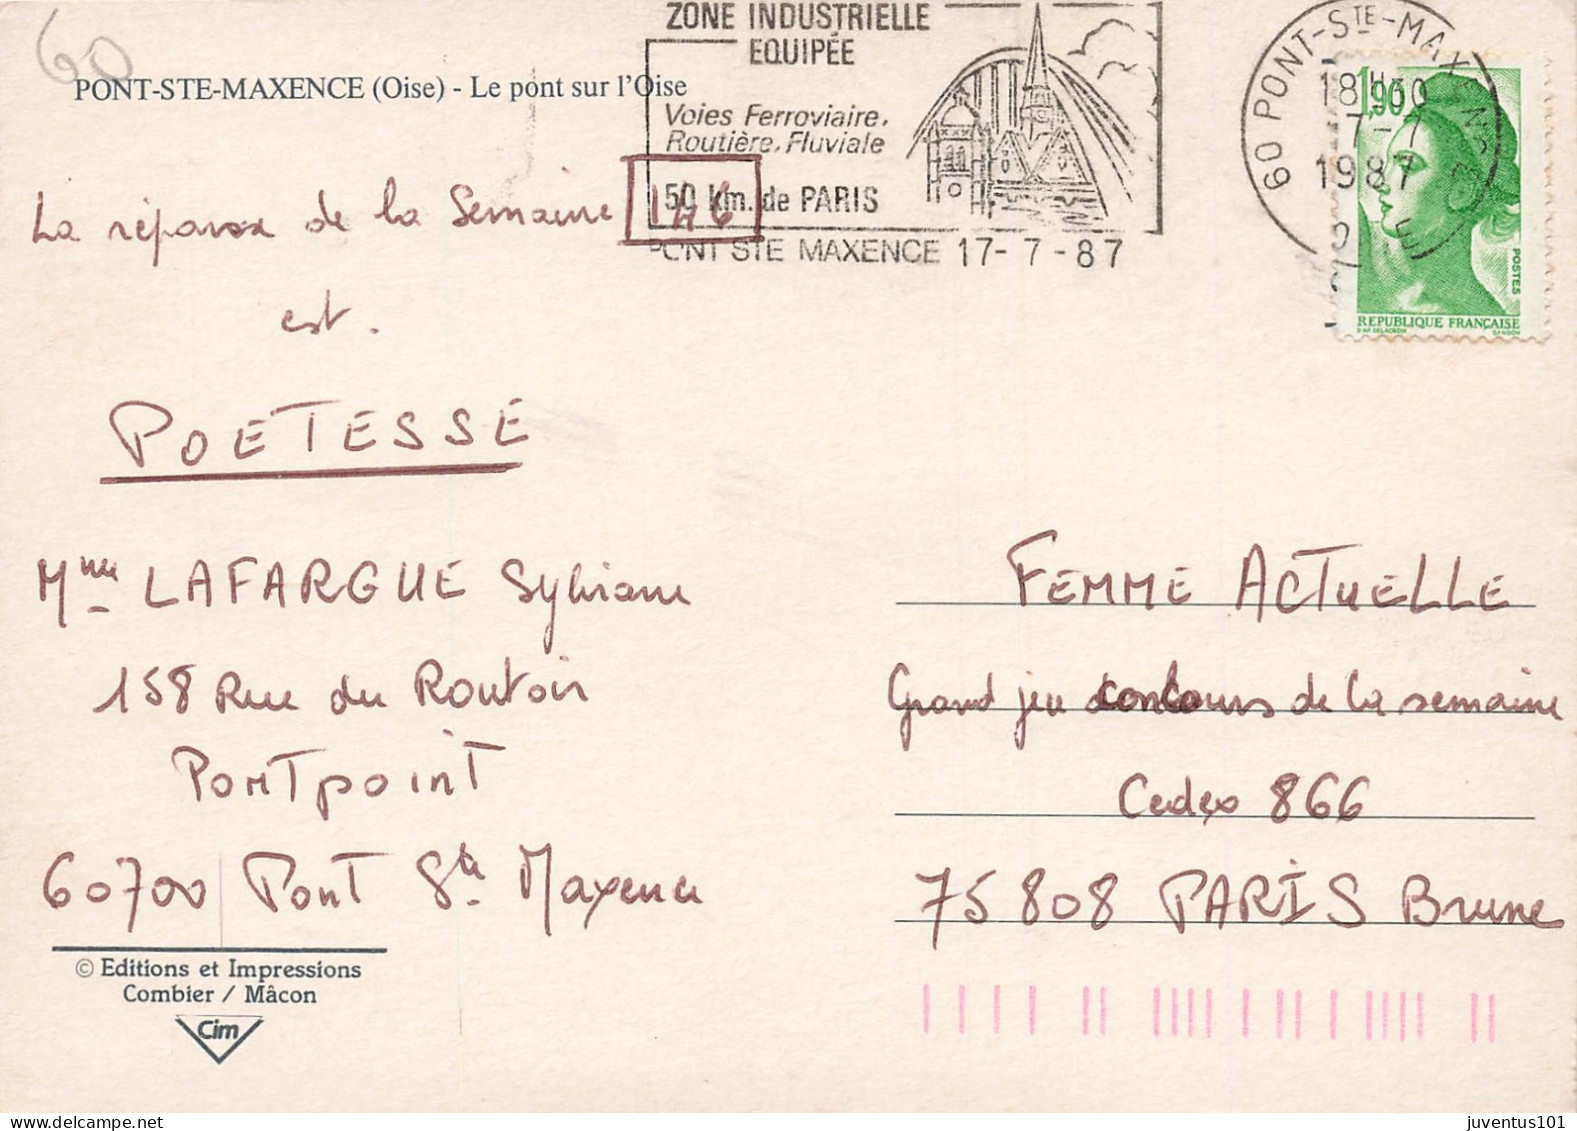 60
PONT-STE-MAXENCE (Oise) - Le pont sur l'Oise
ZONE INDUSTRIELLE
EQUIPÉE
Voies Ferroviaire,
Routière, Fluviale
50 km. de PARIS
PONT STE MAXENCE 17-7-87
60 PONT-STE-MAXENCE
OISE
18H30
17-7
1987
1,90
POSTES
REPUBLIQUE FRANÇAISE
D'AP. DELACROIX GANDON
La réponse de la Semaine 146
est.
POETESSE
Mme LAFARGUE Sylviane
158 Rue du Routoir
Pontpoint
60700 Pont Ste Maxence
FEMME ACTUELLE
Grand jeu concours de la semaine
Cedex 866
75808 PARIS Brune
© Editions et Impressions
Combier / Mâcon
Cim
juventus101